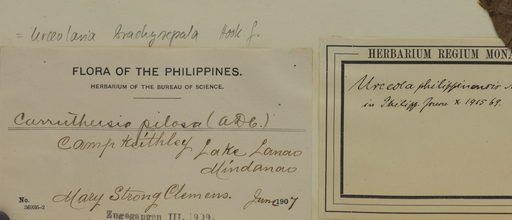 = Urceolaria brachysepala Hook f.
FLORA OF THE PHILIPPINES.
HERBARIUM OF THE BUREAU OF SCIENCE.
Carruthersia pilosa (A.DC.)
Camp Keithley Lake Lanao
Mindanao
No.
Mary Strong Clemens. June 1907
Zugegangen III.
HERBARIUM REGIUM MONA
Urceola philippinensis
in Philipp. Journ X 1915 69.